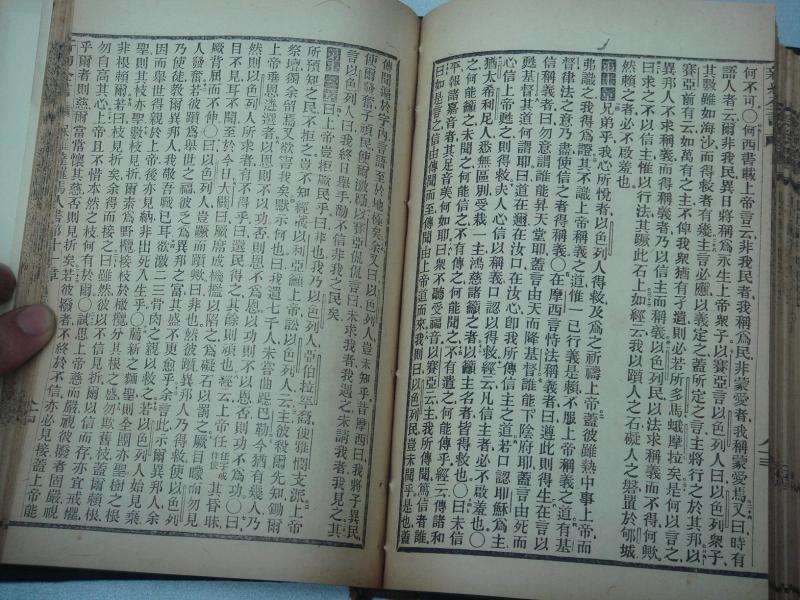 何不可〇何西書載上帝言云非我民者我稱為民非蒙愛者我稱蒙愛焉又曰時有
語人者云爾非我民異日將稱為永生上帝眾子以賽亞言以色列人曰以色列眾子
其數雖如海沙而得救者有幾主言必應以義定之蓋所定之言主將行之於其邦以
賽亞前有云如萬有之主不俾我眾猶有孑遺則必若所多馬蛾摩拉矣是何以言之
異邦人不求稱義而得稱義者乃以信主而稱義以色列民以法求稱義而不得何歟
曰求之不以信主惟以行法其蹶此石上如經云我以躓人之石礙人之磐置於郇城
然賴之者必不啟羞也
第十章兄弟乎我心所悅者以色列人得救及為之祈禱上帝蓋彼雖熱中事上帝而
弗識之我得為證其不識上帝稱義之道惟一己行義是賴不服上帝稱義之道有基
督律法之意乃盡使信之者得稱義〇在摩西言恃法稱義者曰遵此則得生在言以
信稱義者曰勿意謂誰能昇天堂耶蓋言由天而降基督誰能下陰府耶蓋言由死而
甦基督其道何謂耶曰道在邇在汝口在汝心卽我所傳信主之道若口認耶穌為主
心信上帝甦之則得救夫人心信以稱義口認以得救經云凡信主者必不啟羞也
猶太希利尼人悉無區別愛戴一主鴻慈諸籲之者以籲主名者皆得救也〇曰未信
之何能籲之未聞之何能信之不有傳之何能聞之不有遣之何能傳乎經云傳諸和
平報諸嘉音者其足音奚何如耶曰眾不聽受福音以賽亞云主我所傳聞篤信者誰
曰如是之言信由傳聞而至傳聞由上帝道而來我則曰以色列民豈未聞乎是也蓋
傳聞遍於宇內言語至於地極矣余又曰以色列人豈未知乎昔摩西曰我將子異民
使爾發奮子頑民使爾激勵以賽亞侃侃言曰未求我者我遇之未訪我者我見之其
言以色列人曰我終日舉手勸不信非我之民矣
第十一章曰上帝豈拒厥民乎曰非也我乃以色列人亞伯拉罕裔便雅憫支派上帝
所預知之民不柜之豈不知經載以利亞籲上帝訟以色列人云主彼殺爾先知鋤爾
祭壇獨余留焉又欲害我矣默示何也曰我遺七千人未嘗曲跽巴勒今猶有幾人乃
上帝垂恩遴選者以恩則不以功否則恩不為恩以功則不以恩否則功不為功〇曰
然則以色列人所求者有不得乎曰選民得之其餘則頑也經云上帝任其昏昧
目不見耳不聞至於今日大闢曰厥席成機檻以陷之為礙石以罰之厥目矇而勿見
厥背屈而不伸〇曰以色列人豈蹶而躓歟曰非也然彼躓異邦人乃得救使以色列
人發奮若彼躓為舉世之福彼乏為異邦之富其盛不更愈乎余言此示爾異邦人余
乃使徒教爾異邦人我敬吾職已耳欲激二三骨肉之親以救之若以色列人始見棄
因而舉世得親於上帝後亦見納非出死入生乎〇薦新之麵聖則全團亦聖樹之根
聖則其枝亦聖數枝見折爾素為野欖接枝於橄欖分其根之盛勿欺舊枝蓋爾賴根
非根賴爾若曰枝見折矣余得而接之曰雖然彼以不信見折爾以信而存亦宜戒懼
勿自高其心上帝且不惜本然之枝何有於爾〇試思上帝慈而嚴視彼撥者固嚴視
乎爾者則慈爾當常懷其慈否則見折矣若彼撥者不終於不信亦必見接蓋上帝能